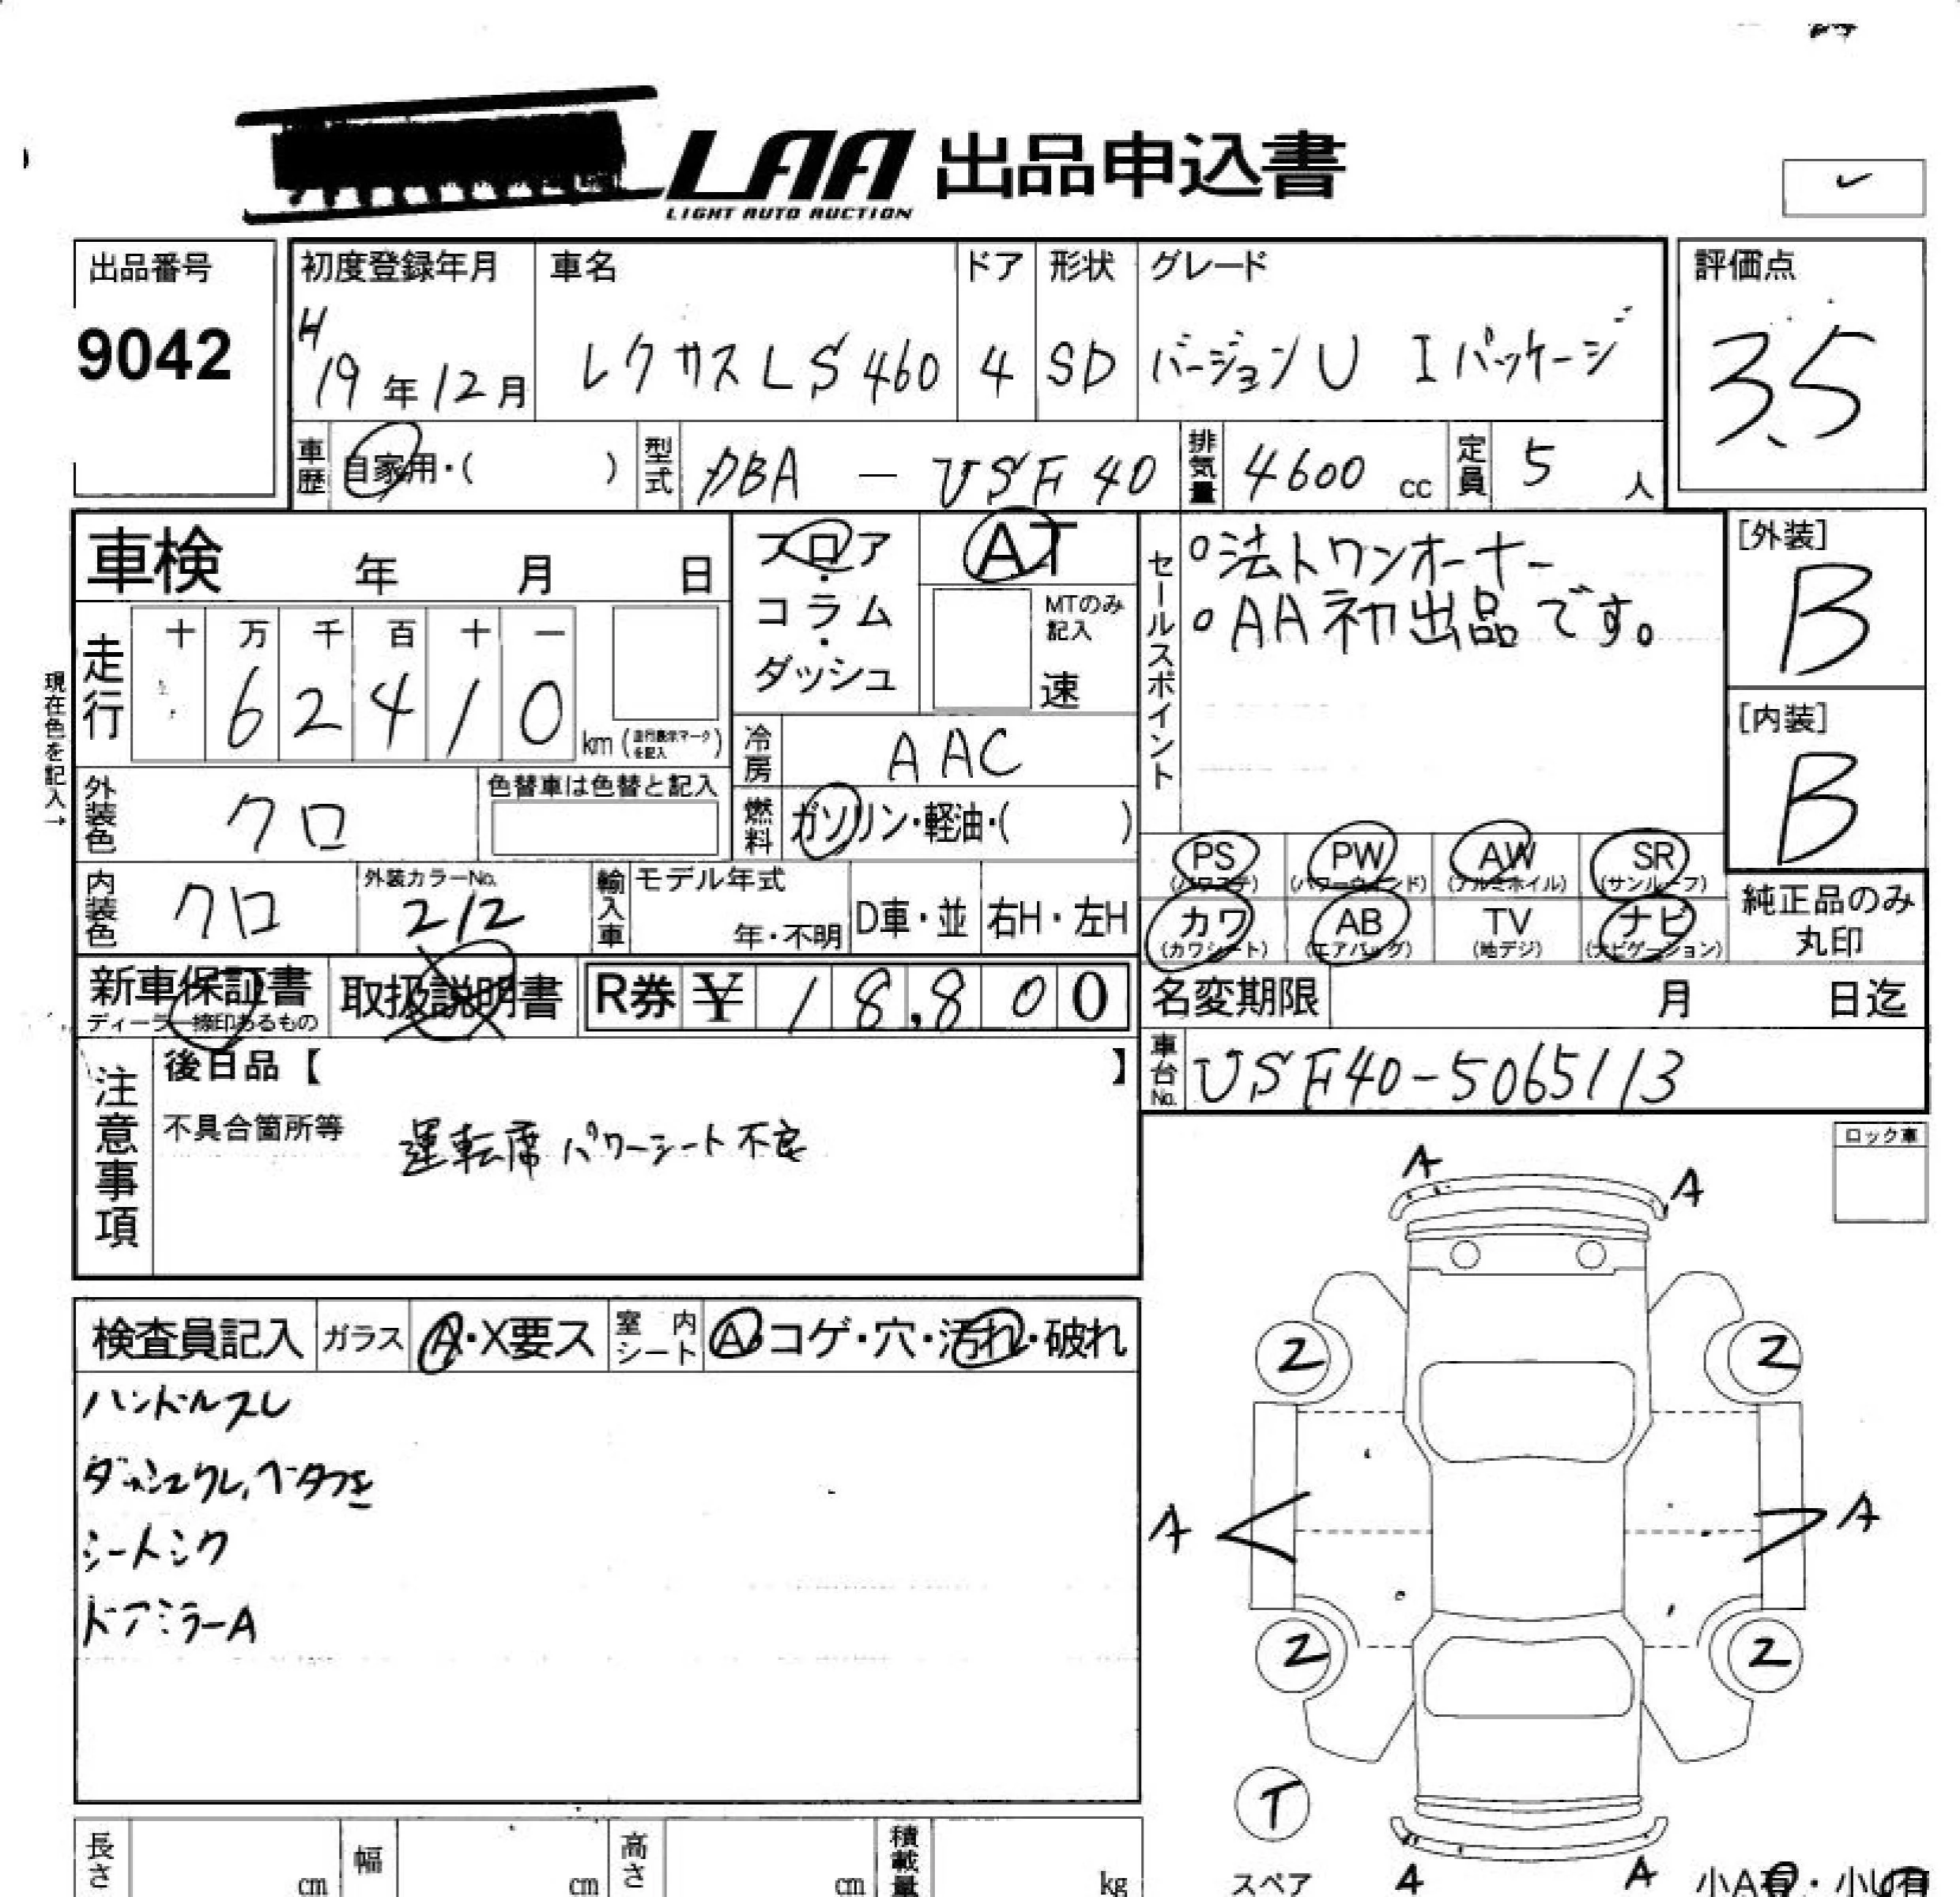 LAA 出品申込書
LIGHT AUTO AUCTION
出品番号
9042
初度登録年月
H
19年12月
車名
レクサスLS460
ドア
4
形状
SD
グレード
バージョンU Iパッケージ
評価点
3.5
車歴
自家用・( )
型式
DBA-USF40
排気量
4600 cc
定員
5 人
車検 年 月 日
フロア・コラム・ダッシュ
AT
MTのみ記入
速
セールスポイント
○法トワンオーナー
○AA初出品です。
[外装]
B
[内装]
B
現在色を記入→
走行
十 万 千 百 十 一
6 2 4 1 0
km (走行表示マークを記入)
冷房
AAC
外装色
クロ
色替車は色替と記入
燃料
ガソリン・軽油・( )
内装色
クロ
外装カラーNo.
212
輸入車
モデル年式
年・不明
D車・並
右H・左H
PS (パワステ)
PW (パワーウィンド)
AW (アルミホイル)
SR (サンルーフ)
カワ (カワシート)
AB (エアバッグ)
TV (地デジ)
ナビ (ナビゲーション)
純正品のみ
丸印
新車保証書
ディーラー捺印あるもの
取扱説明書
R券 ¥ 18,800
名変期限 月 日迄
車台No.
USF40-5065113
注意事項
後日品【 】
不具合箇所等
運転席パワーシート不良
ロック車
検査員記入
ガラス
A・X要ス
室内シート
A・コゲ・穴・汚れ・破れ
ハンドルスレ
ダッシュワレ、ベタつき
シートシワ
ドアミラーA
A
A
2
2
A
A
2
2
T
スペア
A
A
小A有・小U有
長さ
cm
幅
cm
高さ
cm
積載量
kg